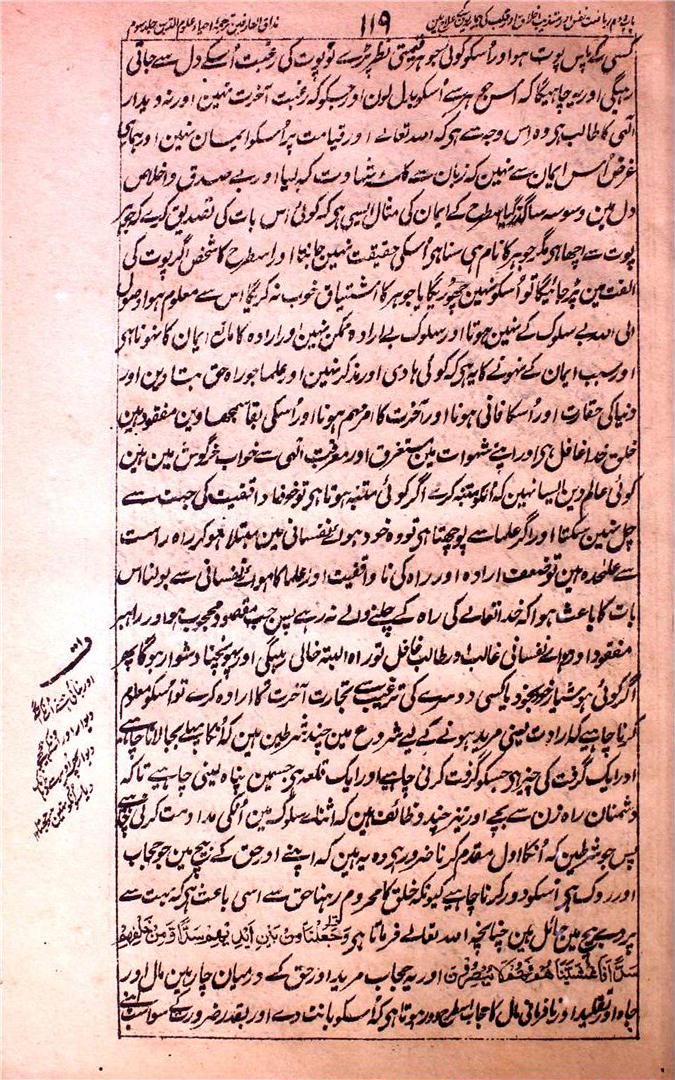 باب دوم ریاضت نفس اور تہذیب اخلاق
۱۱۹
مذاق العارفین ترجمہ احیاء علوم الدین جلد سوم
کسی کے پاس پوت ہو اور اُسکو کوئی جوہر قیمتی نظر پڑے تو پوت کی رغبت اُسکے دل سے جاتی
رہیگی اور یہ چاہیگا کہ اس جوہر سے اُسکو بدل لون اور جسکو کہ رغبت آخرت نہین اور نہ دیدار
الٰہی کا طالب ہی وہ اِس وجہ سے ہی کہ اللہ تعالے اور قیامت پر اُسکو ایمان نہین اور ہماری
غرض اُس ایمان سے نہین کہ زبان سے کلمہ شہادت کہہ لیا اور بے صدق و اخلاص
دل مین وسوسہ سا گذر گیا اسطرح کے ایمان کی مثال ایسی ہی کہ کوئی اس بات کی تصدیق کرے کہ جوہر
پوت سے اچھا ہی مگر جوہر کا نام ہی سنا ہی اُسکی حقیقت نہین جانتا اور اسطرح کا شخص اگر پوت کی
الفت مین پڑ جائیگا تو اُسکو نہین چھوڑیگا یا جوہر کا اشتیاق خوب نہ کریگا اس سے معلوم ہوا وصول
الی اللہ بے سلوک کے نہین ہوتا اور سلوک بے ارادہ ممکن نہین اور ارادہ کا مانع ایمان کا نہونا ہی
اور سبب ایمان کے نہونے کا یہ ہی کہ کوئی ہادی اور مذکر نہین اور علما جو راہ حق بتا دین اور
دنیا کی حقارت اور اُسکا فانی ہونا اور آخرت کا امر مہم ہونا اور اُسکی بقا سمجھا وین مفقود ہین
خلق خدا غافل ہی اور اپنے شہوات مین مستغرق اور معرفت الٰہی سے خواب خرگوش مین ہین
کوئی عالم دین ایسا نہین کہ اُنکو متنبہ کرے اگر کوئی متنبہ ہوتا ہی تو خود نا واقفیت کی جہت سے
چل نہین سکتا اور اگر علما سے پوچھتا ہی تو وہ خود ہواے نفسانی مین مبتلا ہو کر راہ راست
سے علٰحدہ ہین تو ضعف ارادہ اور راہ کی نا واقفیت اور علما کا ہواے نفسانی سے بولنا اس
بات کا باعث ہوا کہ خدا تعالے کی راہ کے چلنے والے نہ رہے پس جب مقصود محجوب ہو اور راہبر
مفقود اور ہواے نفسانی غالب اور طالب غافل تو راہ البتہ خالی رہیگی اور پہونچنا دشوار ہوگا پھر
اگر کوئی ہوشیار خود بخود یا کسی دوسرے کی ترغیب سے تجارت آخرت کا ارادہ کرے تو اُسکو معلوم
کرنا چاہیے کہ ارادت یعنی مرید ہونے کے لیے شروع مین چند شرطین ہین کہ اُنکا پہلے بجا لانا چاہیے
اور ایک گرفت کی چیز ہی جسکو گرفت کرنی چاہیے اور ایک قلعہ ہی جسمین پناہ لینی چاہیے تاکہ
دشمنان راہ زن سے بچے اور نیز چند وظائف ہین کہ اثناے سلوک مین اُنکی مداومت کرنی چاہیے
پس جو شرطین کہ اُنکا اول مقدم کرنا ضرور ہی وہ یہ ہین کہ اپنے اور حق کے بیچ مین جو حجاب
اور روک ہی اُسکو دور کرنا چاہیے کیونکہ خلق کا محروم رہنا حق سے اسی باعث ہی کہ بہت سے
پردے بیچ مین حائل ہین چنانچہ اللہ تعالے فرماتا ہی وَجَعَلْنَا مِنْ بَيْنِ أَيْدِيْهِمْ سَدًّا وَّمِنْ خَلْفِهِمْ
سَدًّا فَأَغْشَيْنَاهُمْ فَهُمْ لَا يُبْصِرُوْنَ اور یہ حجاب مرید اور حق کے درمیان چار ہین مال اور
جاہ اور تقلید اور نافرمانی مال کا حجاب اسطرح دور ہوتا ہی کہ اُسکو بانٹ دے اور بقدر ضرورت کے سوا اپنے
اور بنائی ہمنے اُنکے آگے
دیوار اور اُنکے پیچھے